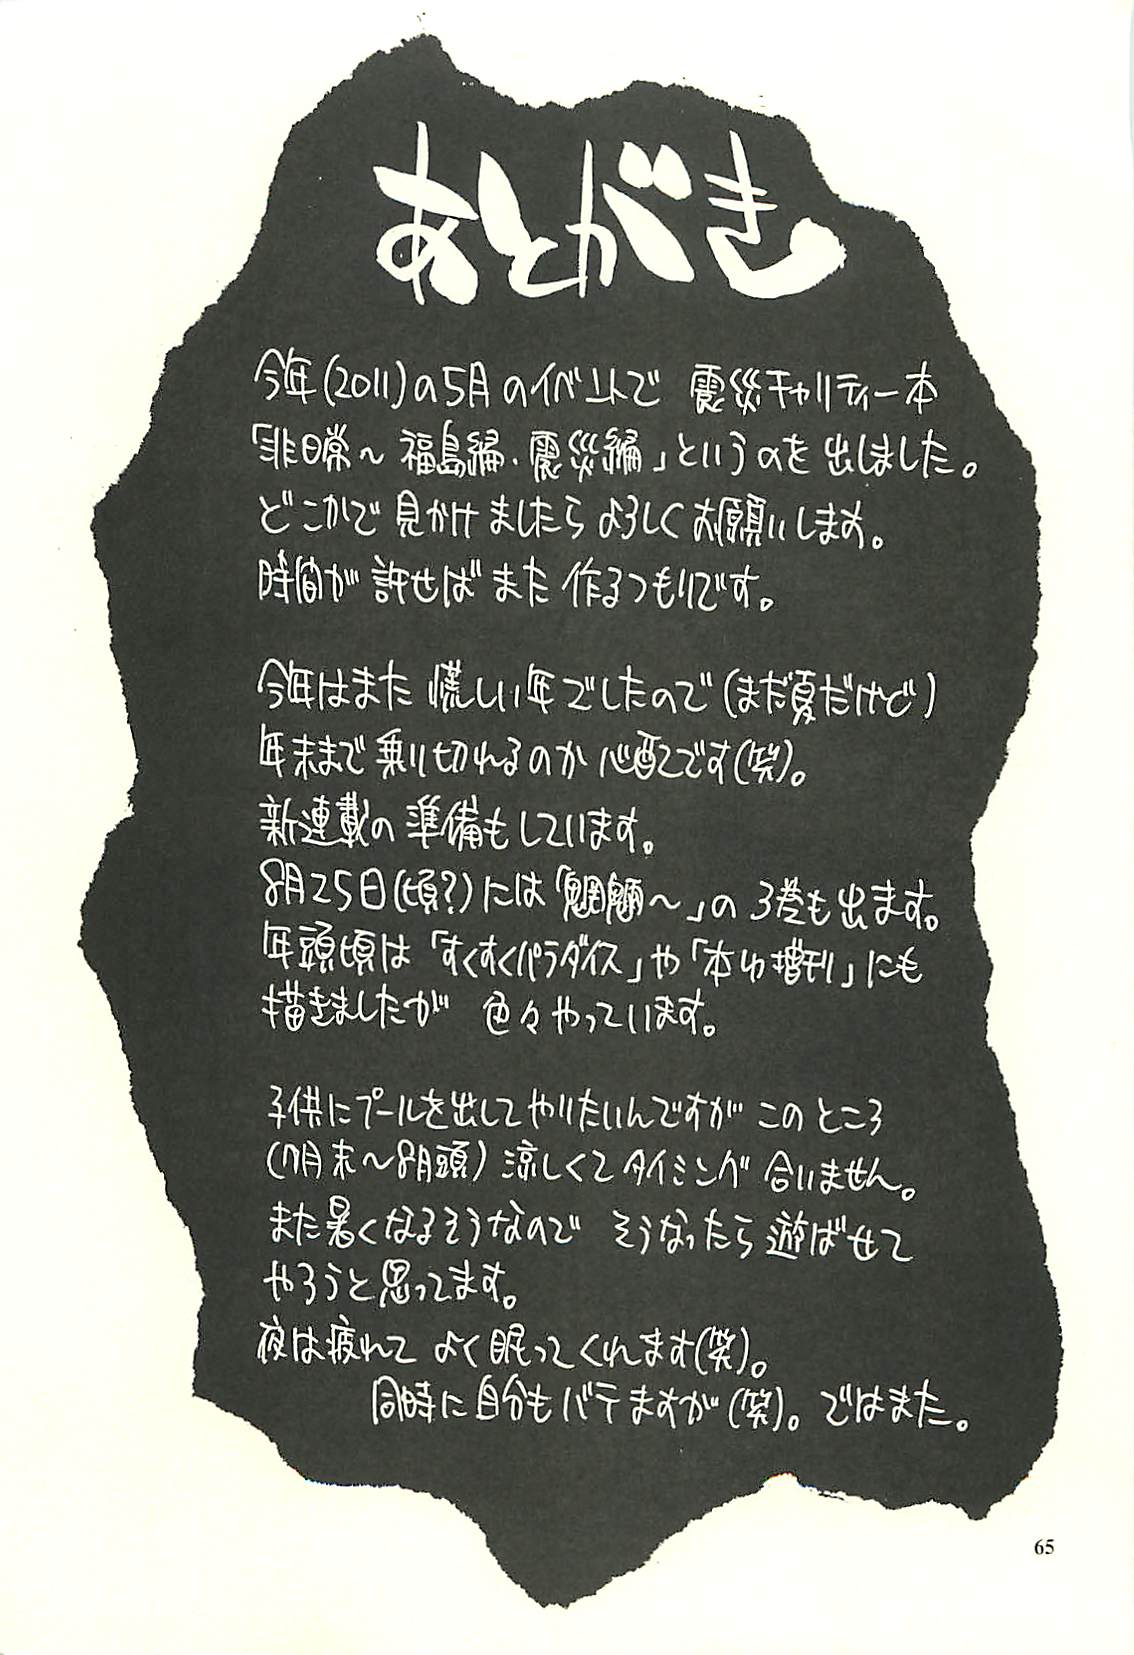 あとがき
今年(2011)の5月のイベントで 震災チャリティー本
「非日常～ 福島編・震災編」というのを 出しました。
どこかで 見かけましたら よろしく お願いします。
時間が 許せば また 作るつもりです。
今年はまた 慌しい年でしたので(まだ夏だけど)
年末まで 乗り切れるのか 心配です(笑)。
新連載の 準備もしています。
8月25日(頃?)には「魍魎～」の 3巻も 出ます。
年頭頃は 「すくすくパラダイス」や「本い増刊」にも
描きましたが 色々 やっています。
子供に プールを出して やりたいんですが このところ
(7月末～8月頭) 涼しくて タイミング 合いません。
また暑くなるそうなので そうなったら 遊ばせて
やろうと 思ってます。
夜は疲れて よく 眠ってくれます(笑)。
同時に 自分も バテますが(笑)。 ではまた。
65